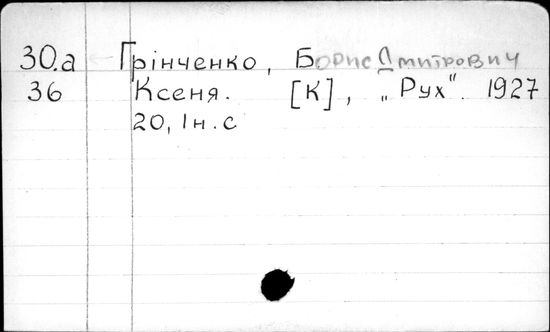 30.а Грінченко, Борис Дмитрович
36 Ксеня. [К], „Рух“. 1927
20, 1н. с